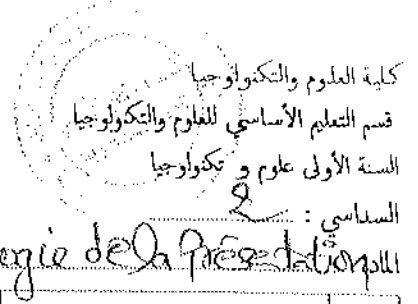 كلية العلوم والتكنولوجيا
قسم التعليم الأساسي للعلوم والتكنولوجيا
السنة الأولى علوم و تكنولوجيا
السداسي : 2
de la Présentation